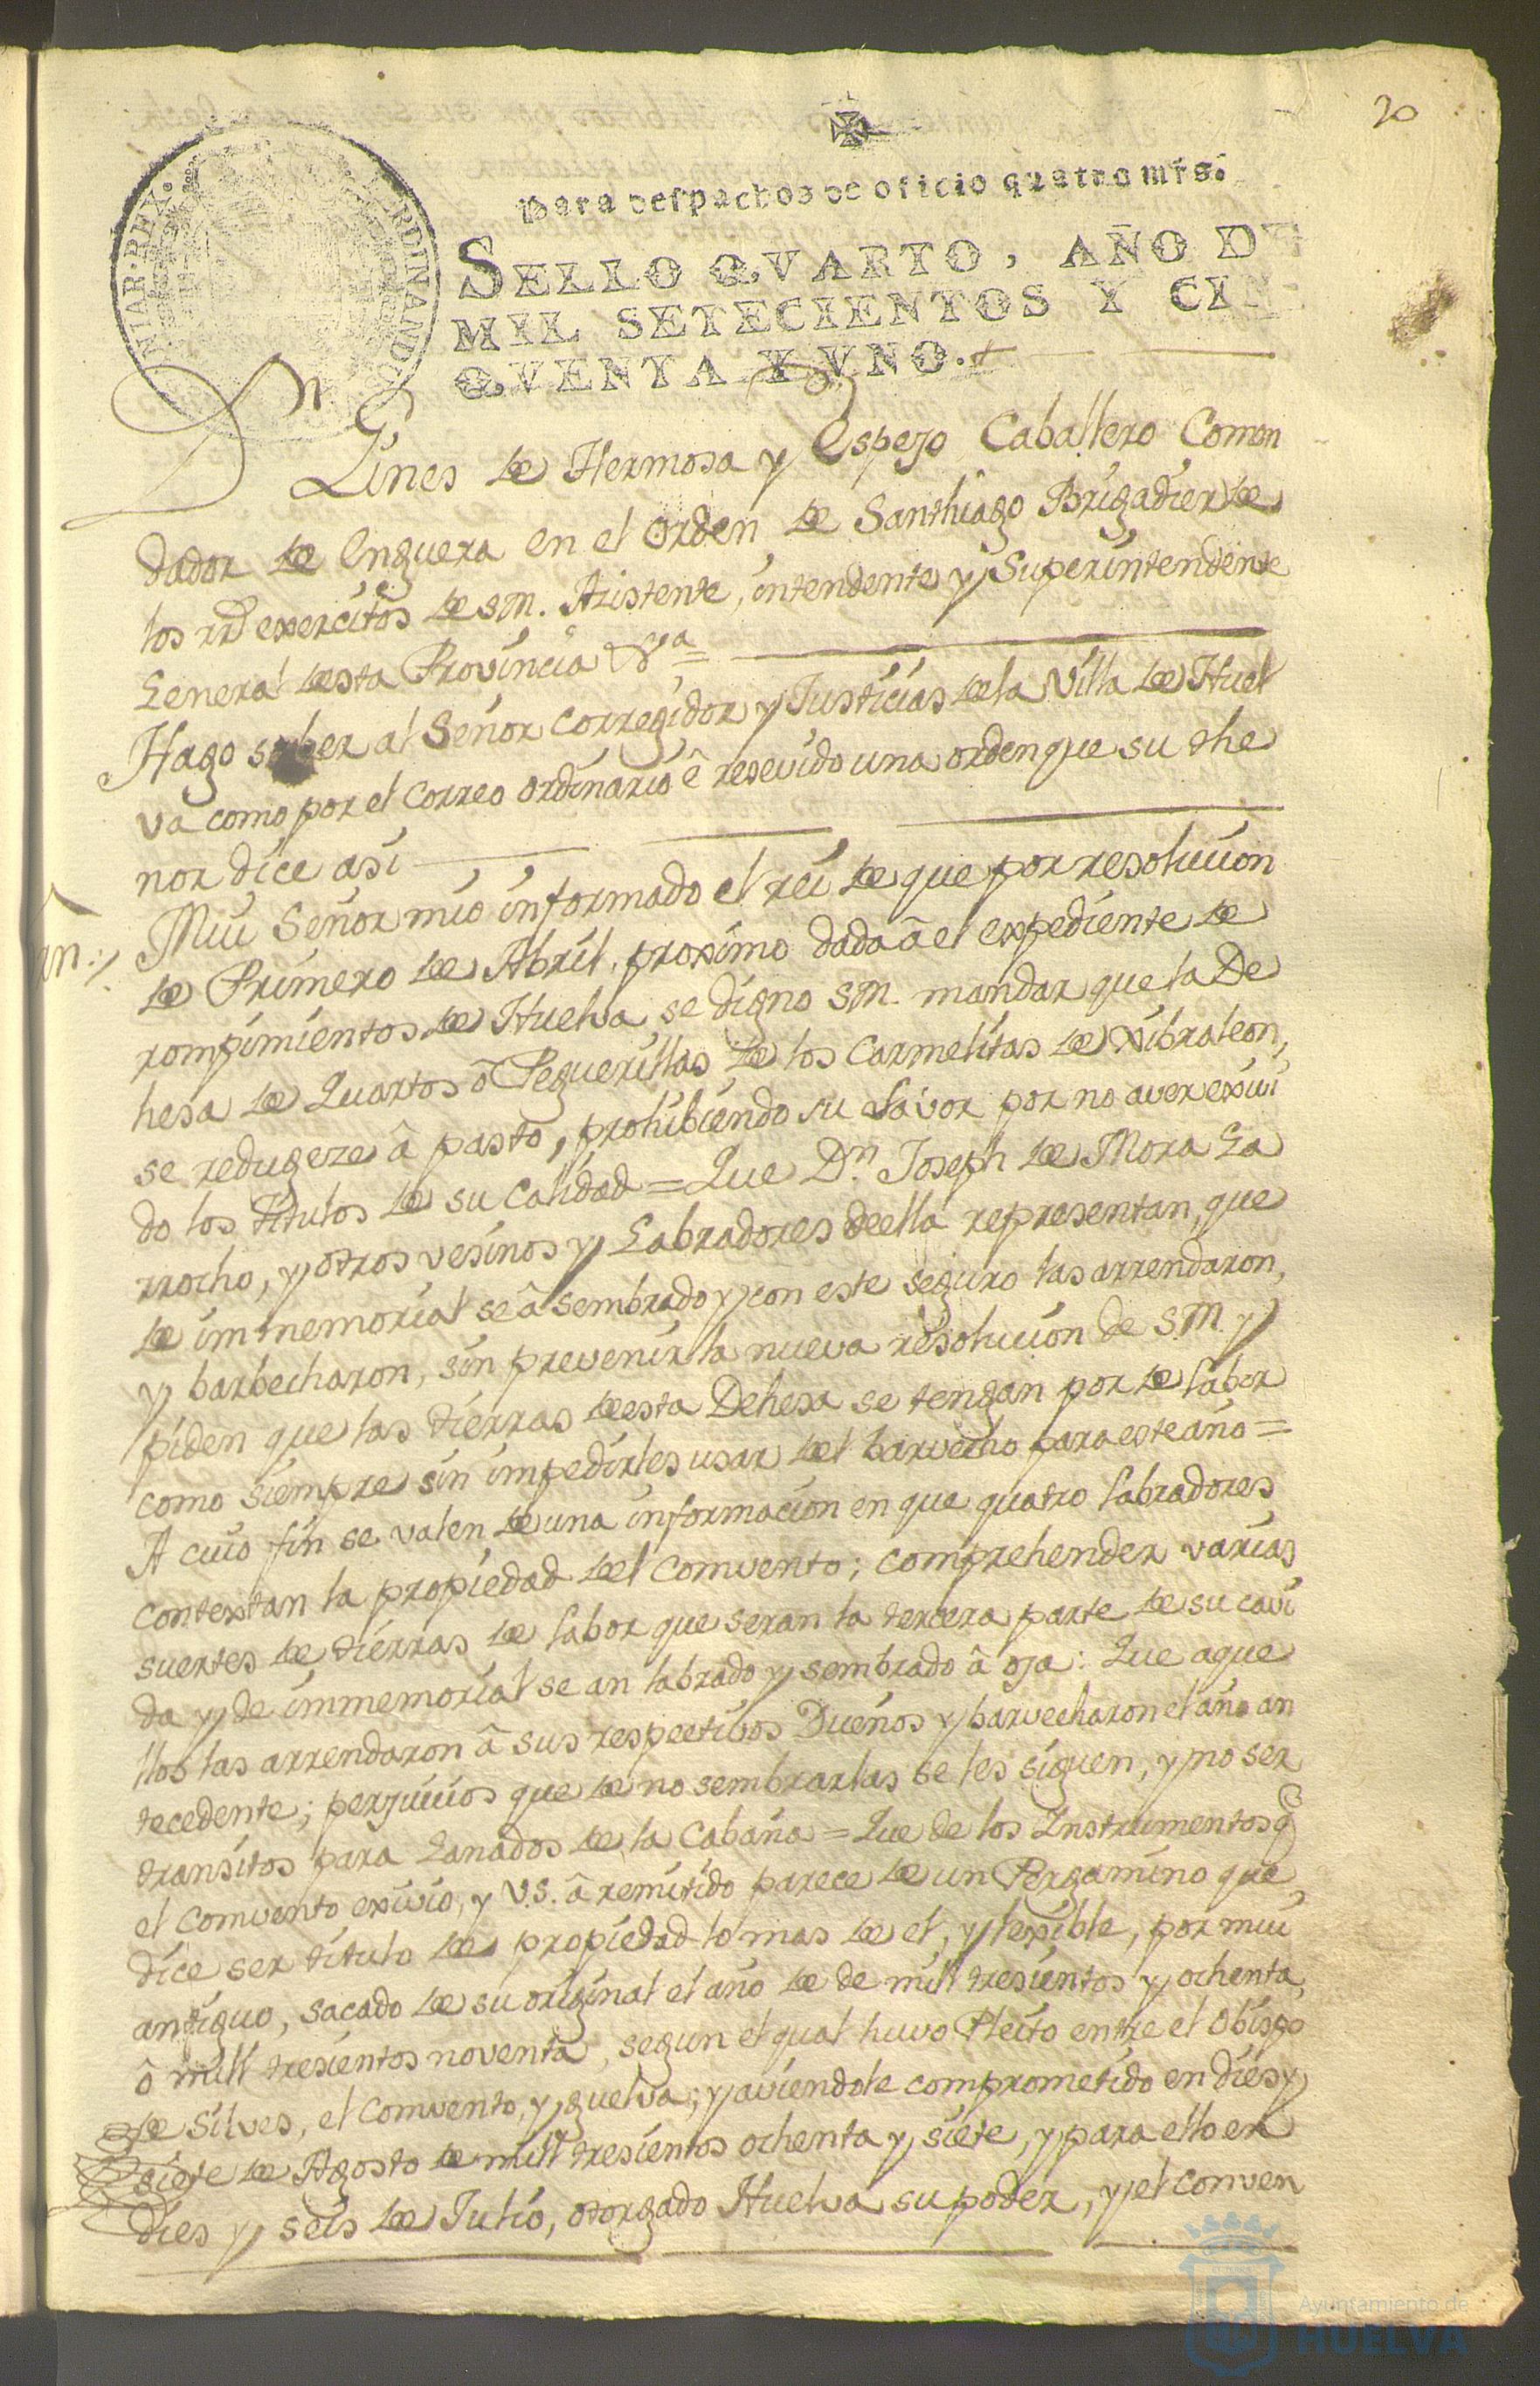 20
Para despachos de oficio quatro mrs.
SELLO QVARTO, AÑO DE
MIL SETECIENTOS Y CIN
QVENTA Y VNO.
NIAR·REX·
FERDINANDUS
Dn Gines de Hermosa y Espejo Caballero Comen
dador de Enguera en el orden de Santhiago Brigadier de
los rrs exercitos de S.M. Asistente, intendente y Superintendente
General desta Provincia &ra =
Hago saber al Señor Corregidor y Justicias de la Villa de Huel
va como por el Correo ordinario ê resevido una orden que su the
nor dice asi
Mui Señor mio informado el rei de que por resolucion
de Primero de Abril, proximo dada â el expediente de
rompimientos de Huelva se digno S.M. mandar que la De
hesa de Quartos ô Peguerillas de los Carmelitas de Xibraleon,
se redugeze â pasto, prohibiendo su Lavor por no aver exivi
do los titulos de su calidad = Que Dn. Joseph de Mora Ga
rrocho, y otros vesinos y Labradores de ella representan, que
de immemorial se â sembrado y con este seguro las arrendaron,
y barbecharon, sin prevenir la nueva resolucion de S.M. y
piden que las tierras de esta Dehesa se tengan por de labor
como siempre sin impedirles usar del barvecho para este año =
A cuio fin se valen de una informacion en que quatro labradores
contextan la propiedad del Comvento; comprehender varias
suertes de tierras de labor que seran la tercera parte de su cavi
da y de immemorial se an labrado y sembrado â oja: Que aque
llos las arrendaron â sus respectivos Dueños y barvecharon el año an
tecedente; perjuicios que de no sembrarlas se les siguen, y no ser
transitos para Ganados de la Cabaña = Que de los Instrumentos q
el Comvento exivio, y V.S. â remitido parece de un Pergamino que
dice ser titulo de propiedad lo mas de el, y lexible, por mui
antiguo, sacado de su original el año de de mill tresientos y ochenta,
ô mill tresientos noventa, segun el qual huvo Pleito entre el Obispo
de Silves, el Comvento, y guelva; y aviendole comprometido en dies y
siete de Agosto de mill tresientos ochenta y siete, y para ello en
dies y seis de Julio, otorgado Huelva su poder, y el Conven
Ayuntamiento de
HUELVA